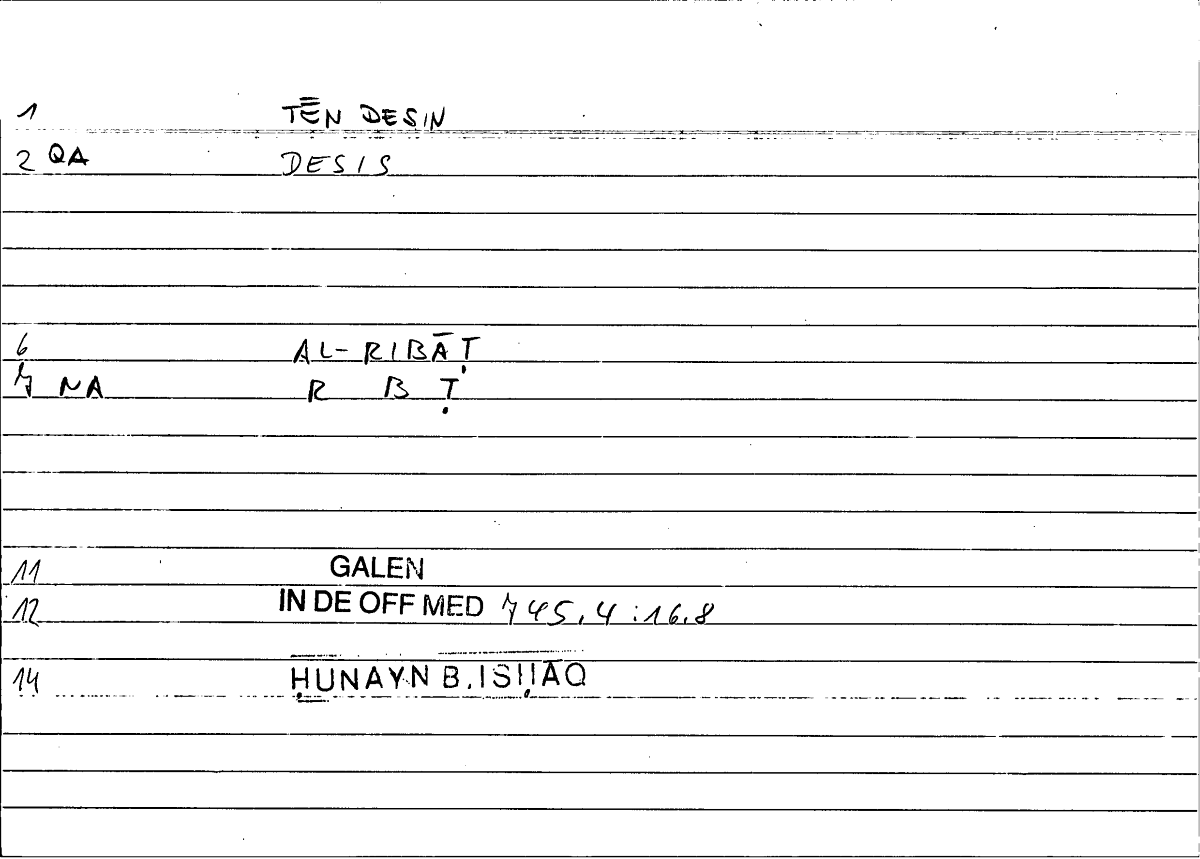 1 TĒN DESIN
2 QA DESIS
6 AL-RIBĀṬ
7 NA R B Ṭ
11 GALEN
12 IN DE OFF MED 745.4:16.8
14 ḤUNAYN B. ISḤĀQ